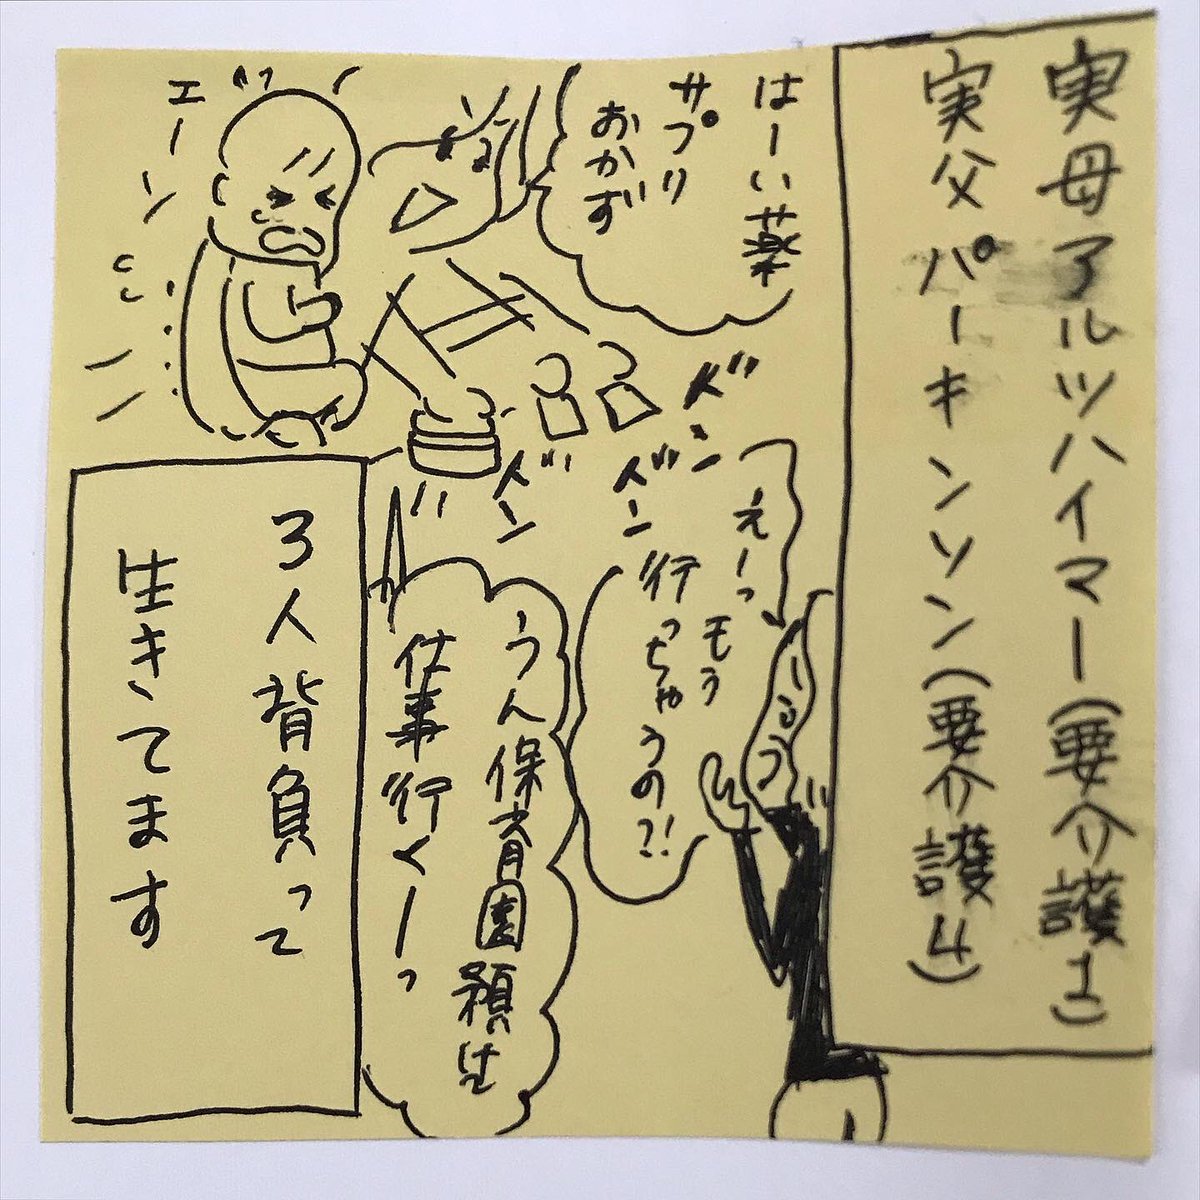 実母アルツハイマー(要介護1)
実父パーキンソン(要介護4)
はーい薬
サプリ
おかず
エーン
ドン
ドン
ドン
えーっ
もう
行っちゃうの?!
うん保育園頼む
仕事行くーっ
3人背負って
生きてます